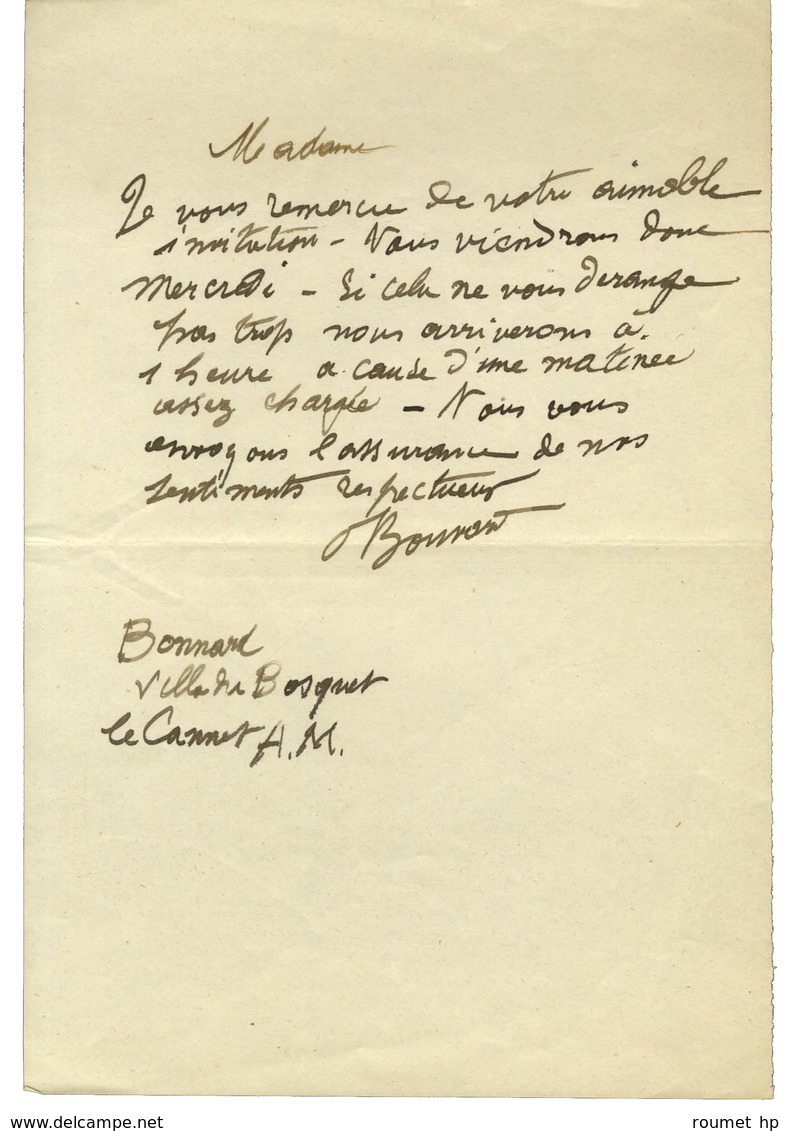 Madame
Je vous remercie de votre aimable
invitation - Nous viendrons donc
Mercredi - Si cela ne vous derange
pas trop nous arriverons à
1 heure a cause d'une matinée
assez chargée - Nous vous
envoyons l'assurance de nos
sentiments respectueux
PBonnard
Bonnard
Villa du Bosquet
le Cannet A.M.
www.delcampe.net
roumet hp